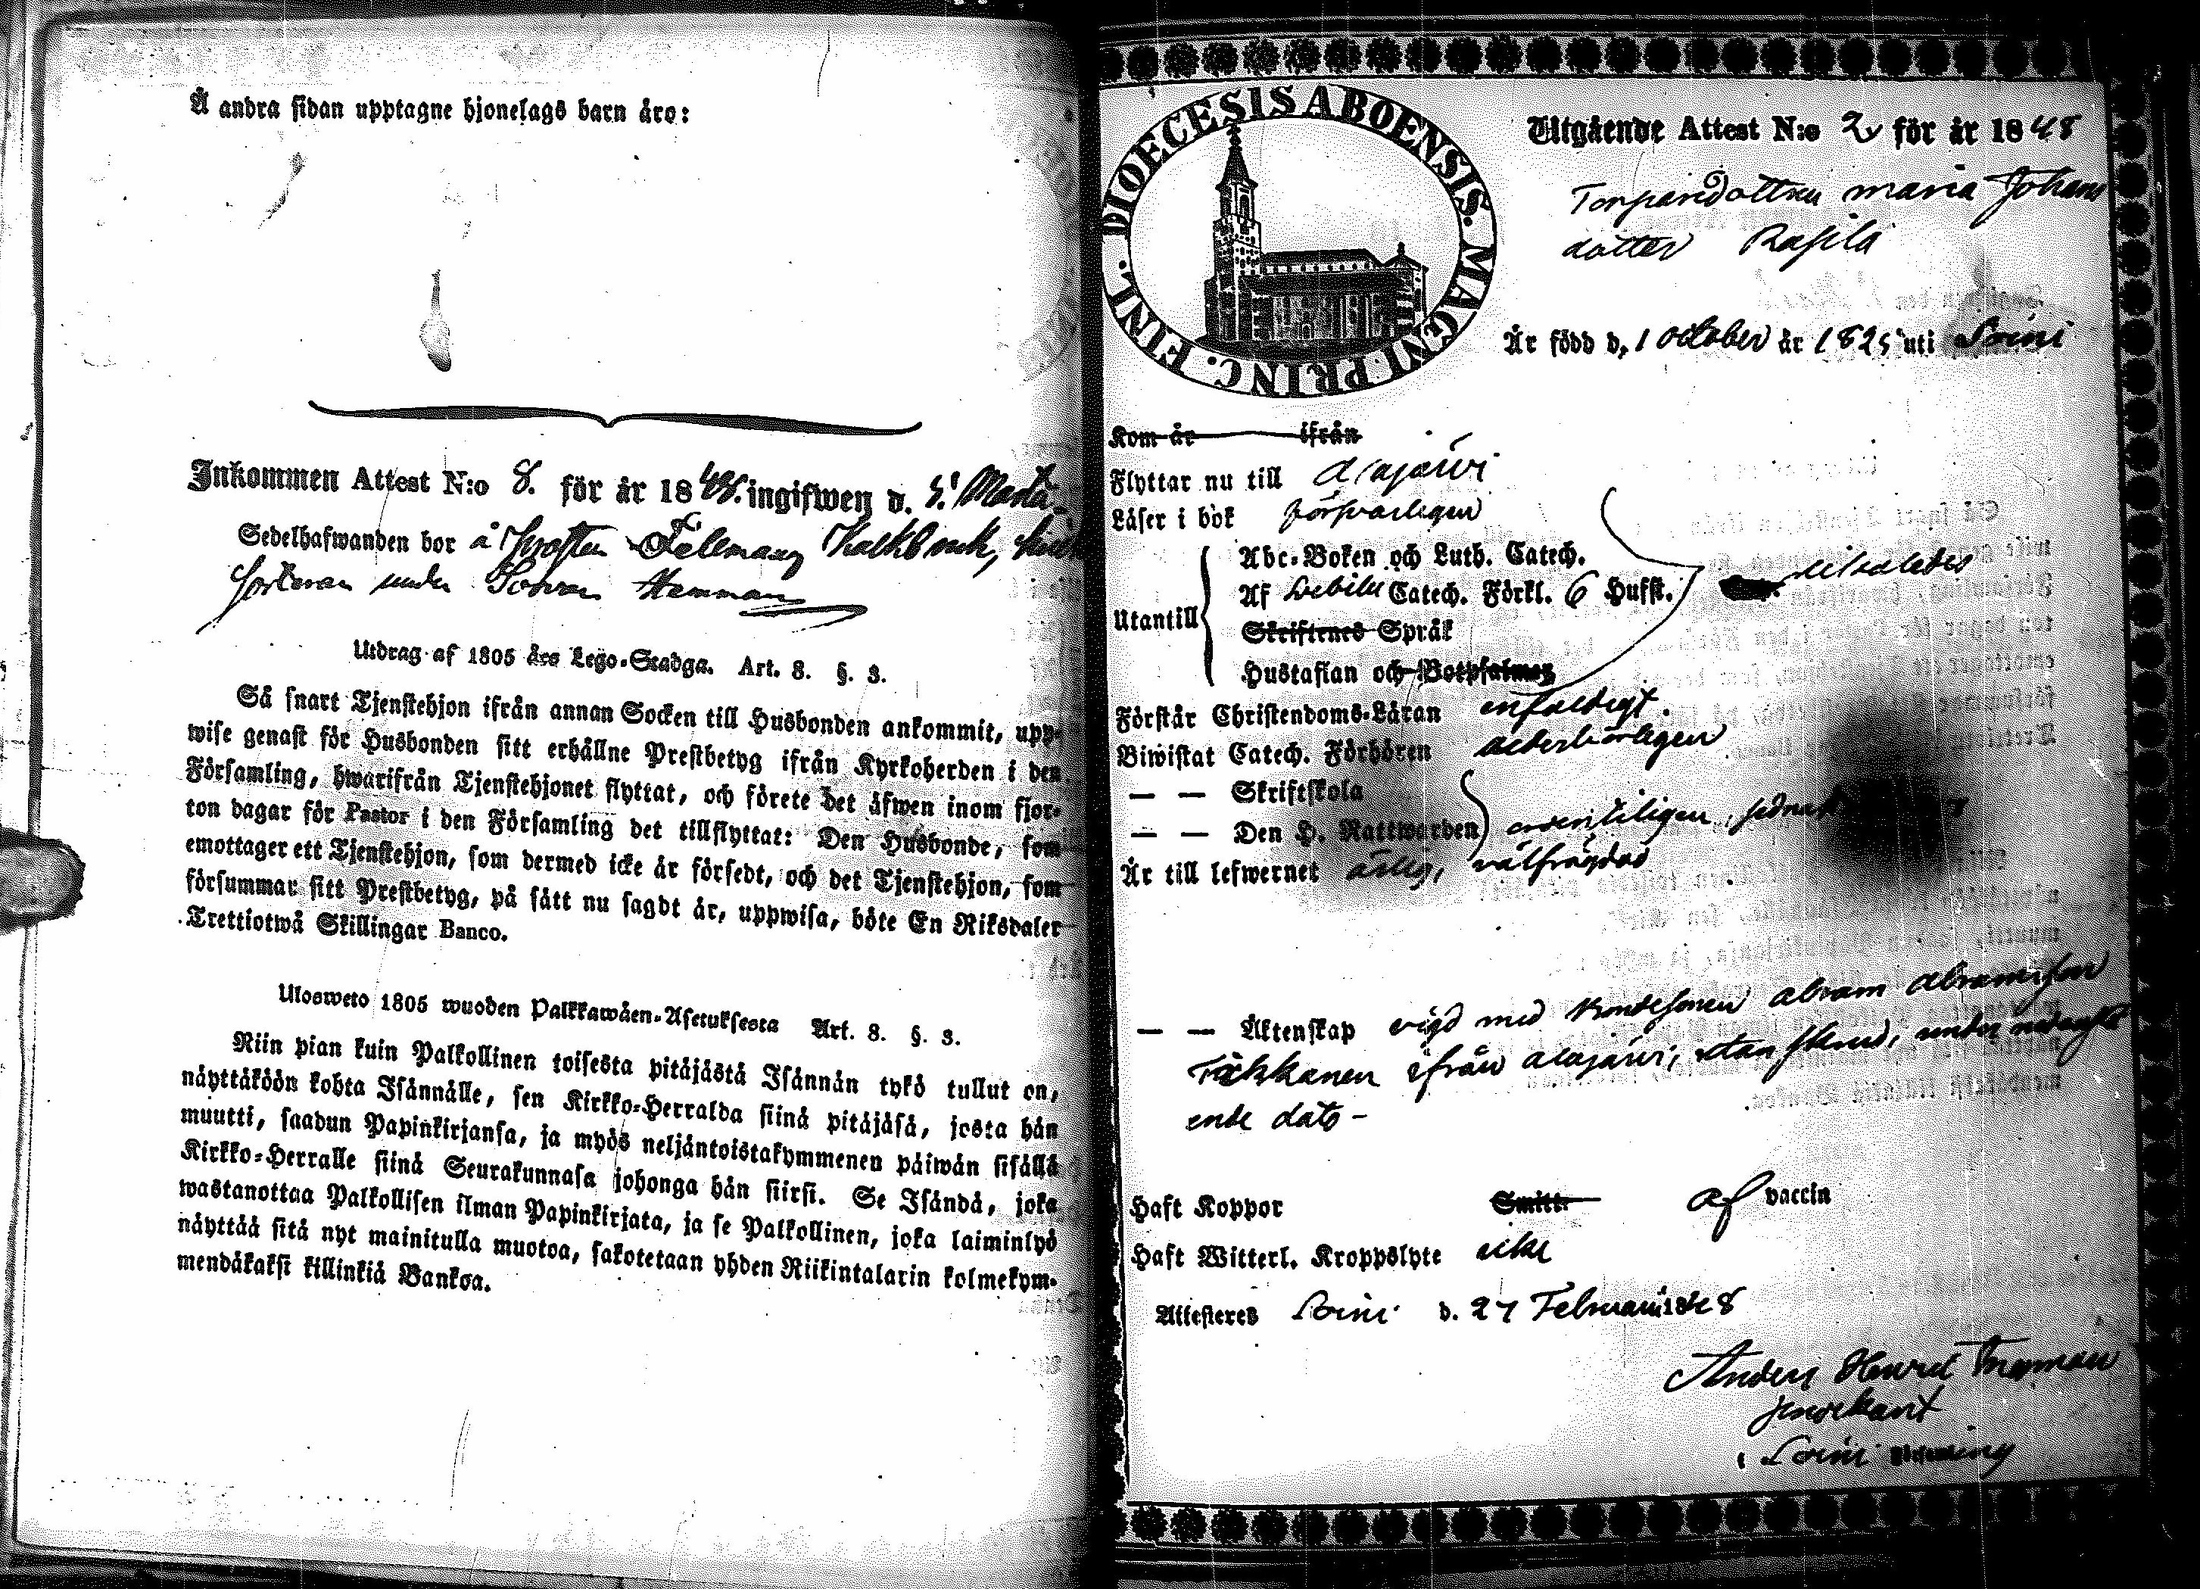 Å andra sidan upptagne hjonelags barn äro:
Inkommen Attest N:o 8. för år 18 ingifwen d.
Sedelhafwanden bor å
under
Utdrag af 1805 års Lego-Stadga. Art. 8. §. 3.
Så snart Tjenstehjon ifrån annan Socken till Husbonden ankommit, upp-
wise genast för Husbonden sitt erhållne Prestbetyg ifrån Kyrkoherden i den
Församling, hwarifrån Tjenstehjonet flyttat, och förete det äfwen inom fjor-
ton dagar för Pastor i den Församling det tillflyttat: Den Husbonde, som
emottager ett Tjenstehjon, som dermed icke är försedt, och det Tjenstehjon, som
försummar sitt Prestbetyg, på sätt nu sagdt är, uppwisa, böte En Riksdaler
Trettiotwå Skillingar Banco.
Ulosweto 1805 wuoden Palkkawäen-Asetuksesta Art. 8. §. 3.
Niin pian kuin Palkollinen toisesta pitäjästä Isännän tykö tullut on,
näyttäköön kohta Isännälle, sen Kirkko-Herralda siinä pitäjäsä, josta hän
muutti, saadun Papinkirjansa, ja myös neljäntoistakymmenen päiwän sisällä
Kirkko-Herralle siinä Seurakunnasa johonga hän siirsi. Se Isändä, joka
wastanottaa Palkollisen ilman Papinkirjata, ja se Palkollinen, joka laiminlyö
näyttää sitä nyt mainitulla muotoa, sakotetaan yhden Riikintalarin kolmekym-
mendäkaksi killinkiä Bankoa.
DIOECESIS ABOENSIS. MAGNI PRINC. FINL.
Utgående Attest N:o 2 för år 1848
Torparedottren Maria Johans
dotter Rasila
Är född d. 1 October år 1825 uti Soini
Kom år ifrån
Flyttar nu till Alajärvi
Läser i bok försvarligen
Utantill
Abc-Boken och Luth. Catech.
Af Catech. Förkl. 6 Hufst.
likaledes
Skriftenes Språk
Hustaflan och Botpsalmer
Förstår Christendoms-Läran enfaldigt.
Biwistat Catech. Förhören vederbörligen
— — Skriftskola
— — Den H. Nattwarden ordentligen,
Är till lefwernet ärlig, välfrägdad
— — Äktenskap vigd med Bondesonen Abram Abramsson
Takkanen ifrån Alajärvi, utan under
ende dato –
Haft Koppor Smitt. af vaccin
Haft Witterl. Kroppslyte icke
Attesteras Soini d. 27 Februari 1848
Anders Henric
Soini